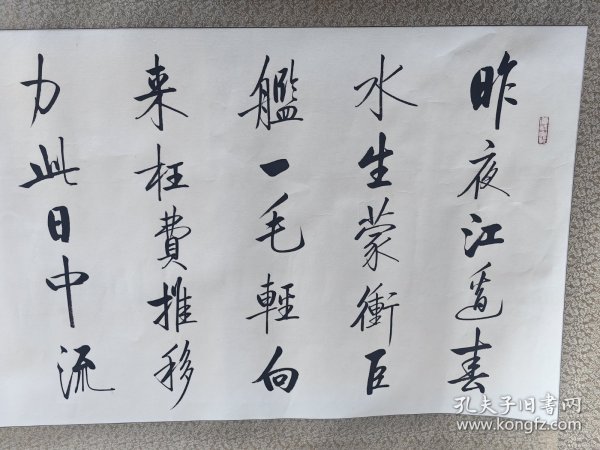 昨夜江邊春
水生蒙衝巨
艦一毛輕向
来枉費推移
力此日中流
孔夫子旧书网
www.kongfz.com